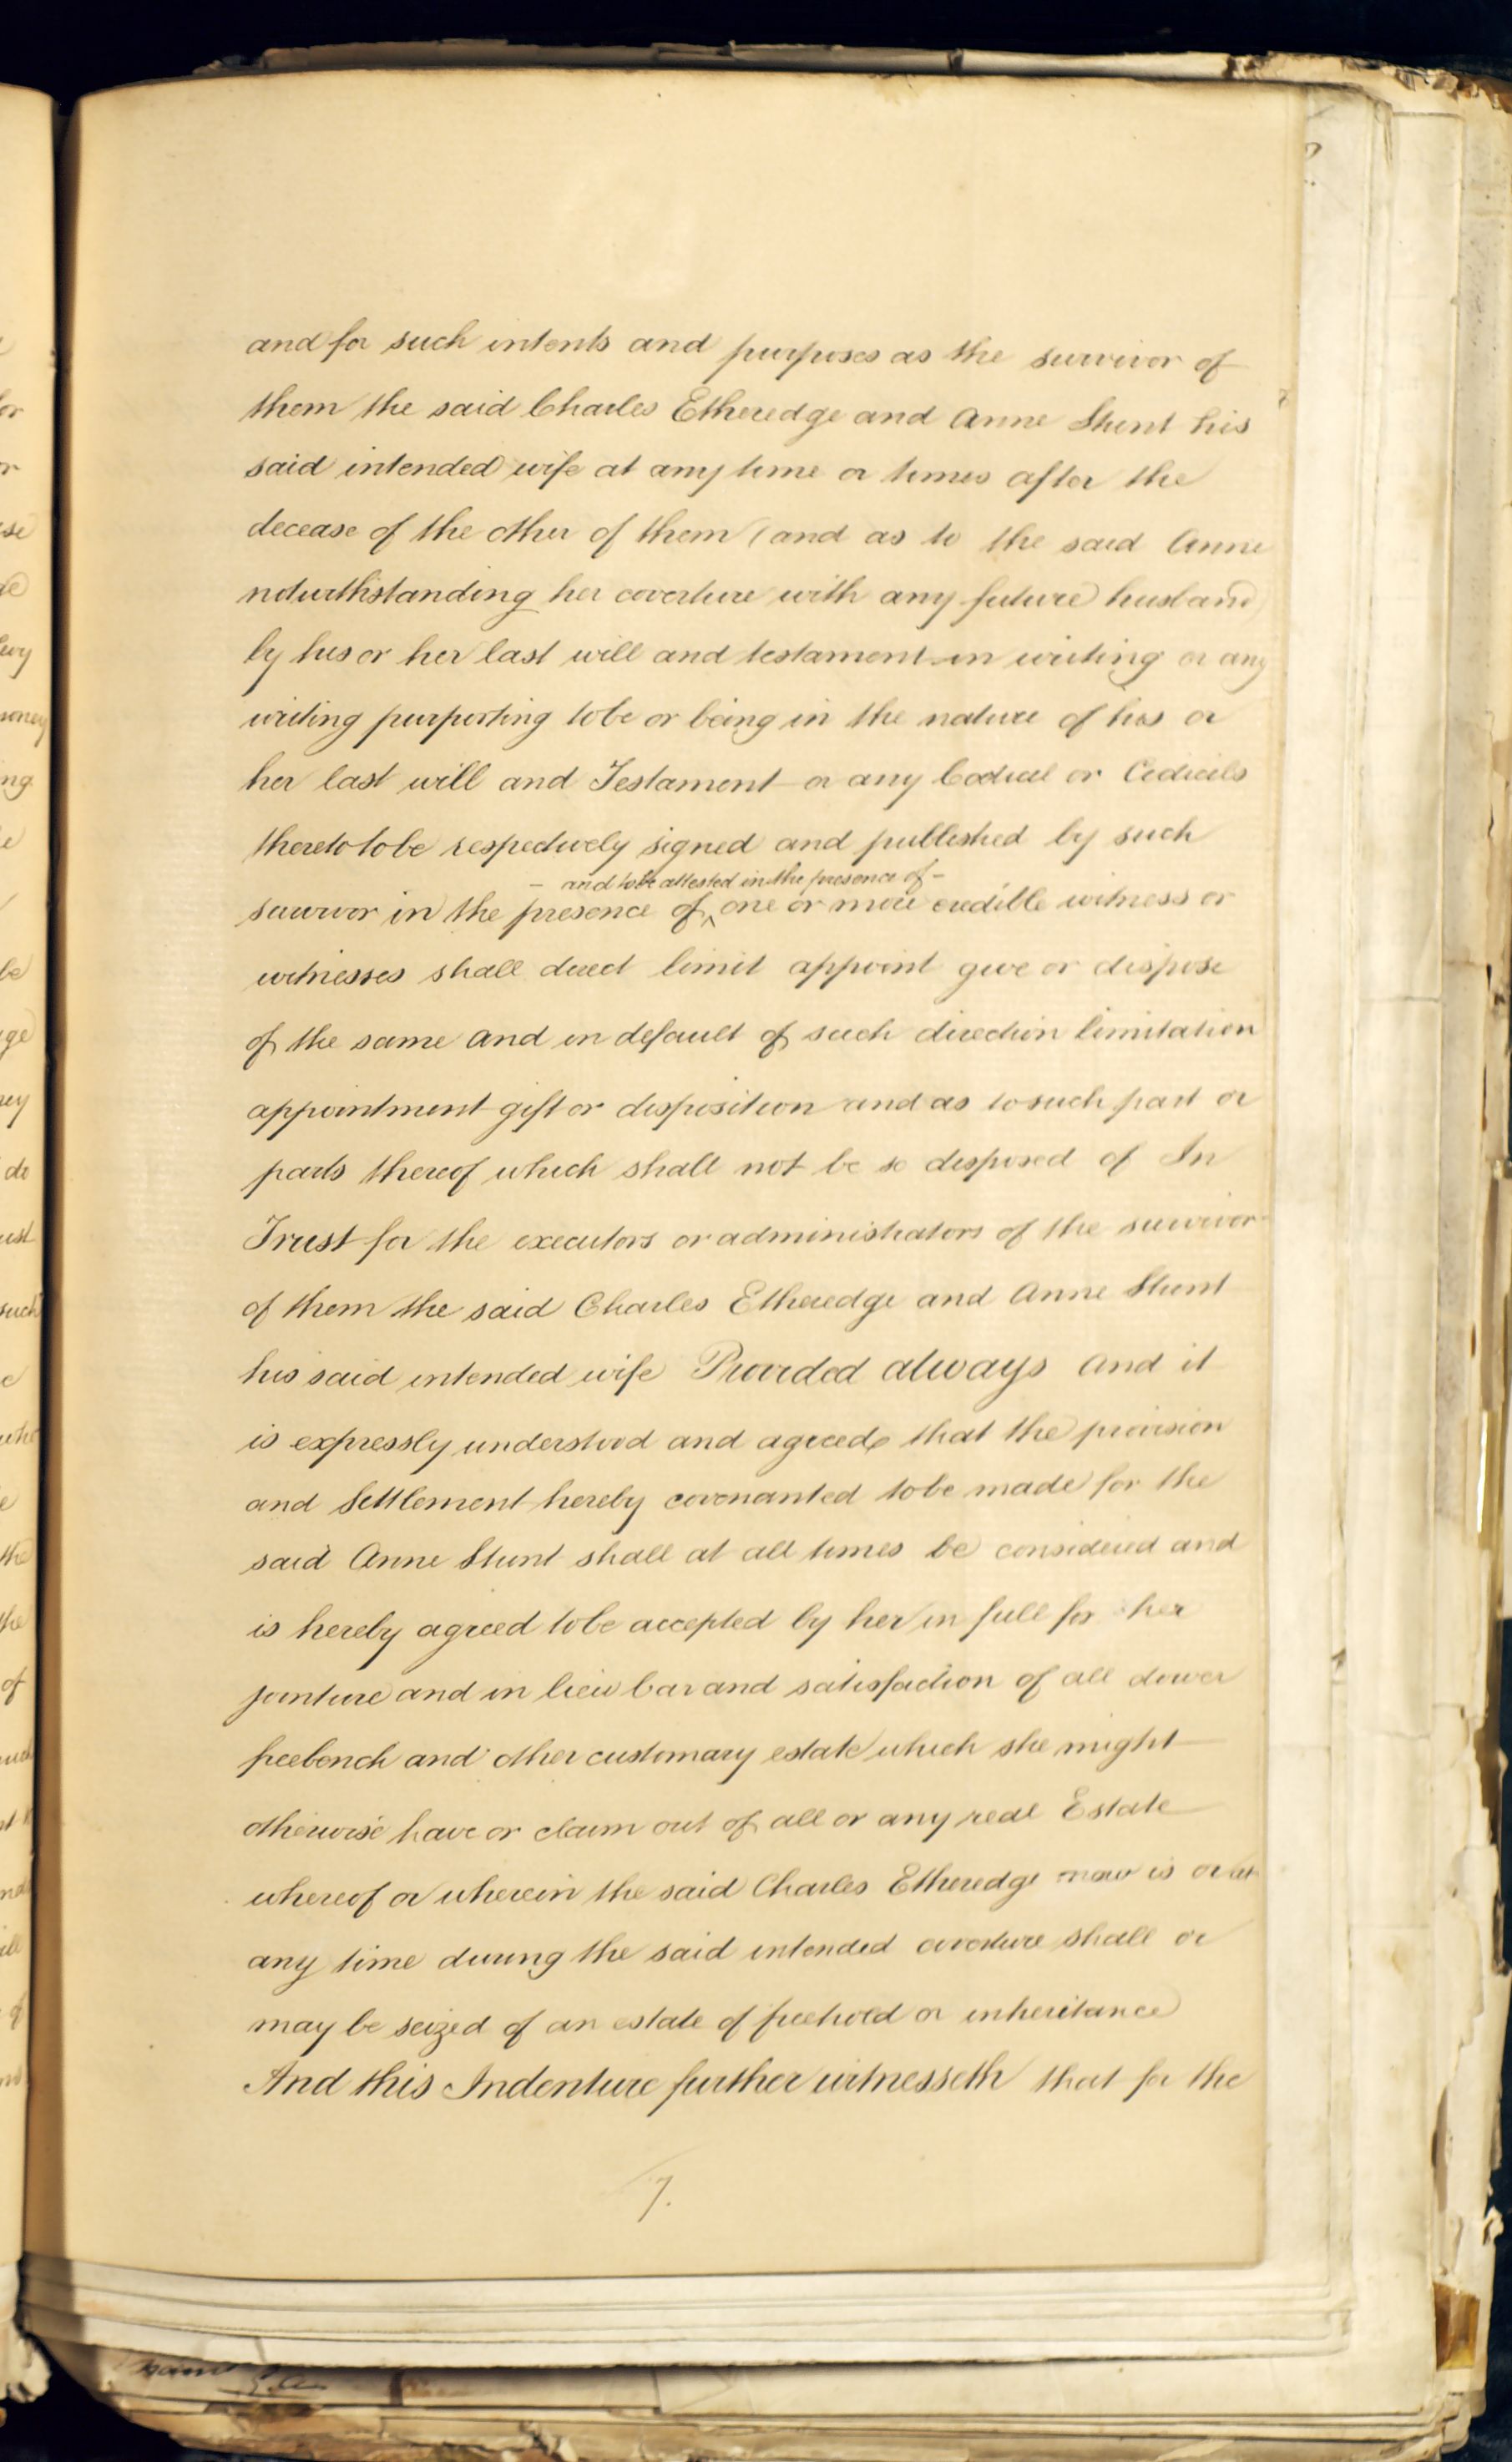 and for such intents and purposes as the survivor of
them the said Charles Etheredge and Anne Stunt his
said intended wife at any time or times after the
decease of the other of them (and as to the said Anne
notwithstanding her coverture with any future husband)
by his or her last will and testament in writing or any
writing purporting to be or being in the nature of his or
her last will and Testament or any Codicil or Codicils
thereto to be respectively signed and published by such
– and to be attested in the presence of –
survivor in the presence of ^ one or more credible witness or
witnesses shall direct limit appoint give or dispose
of the same and in default of such direction limitation
appointment gift or disposition and as to such part or
parts thereof which shall not be so disposed of In
Trust for the executors or administrators of the survivor
of them the said Charles Etheredge and Anne Stunt
his said intended wife Provided always and it
is expressly understood and agreed that the provision
and Settlement hereby covenanted to be made for the
said Anne Stunt shall at all times be considered and
is hereby agreed to be accepted by her in full for her
jointure and in lieu bar and satisfaction of all dower
freebench and other customary estate which she might
otherwise have or claim out of all or any real Estate
whereof or wherein the said Charles Etheredge now is or at
any time during the said intended coverture shall or
may be seized of an estate of freehold or inheritance
And this Indenture further witnesseth that for the
7.